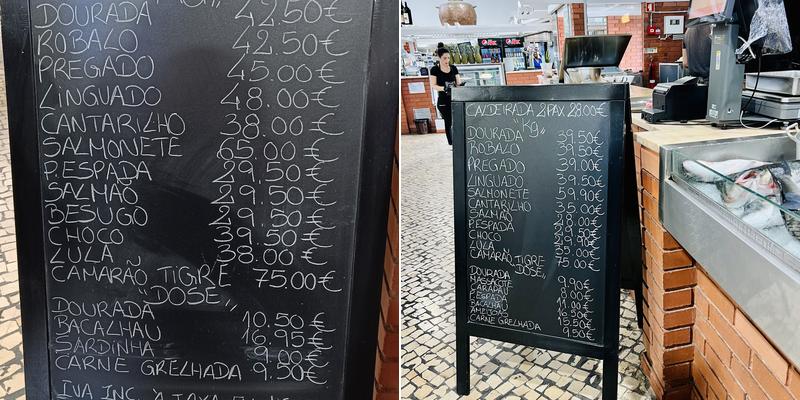 DOURADA 42.50€
ROBALO 42.50€
PREGADO 45.00€
LINGUADO 48.00€
CANTARILHO 38.00€
SALMONETE 65.00€
P.ESPADA 29.50€
SALMÃO 29.50€
BESUGO 29.50€
CHOCO 39.50€
LULA 38.00€
CAMARÃO TIGRE 75.00€
"DOSE"
DOURADA 10.50€
BACALHAU 16.95€
SARDINHA 9.00€
CARNE GRELHADA 9.50€
IVA INC.
CALDEIRADA 2PAX 28.00€
"KG"
DOURADA 39.50€
ROBALO 39.50€
PREGADO 39.00€
LINGUADO 39.50€
SALMONETE 59.90€
CANTARILHO 35.00€
SALMÃO
P.ESPADA
CHOCO
LULA
CAMARÃO TIGRE 75.00€
"DOSE"
DOURADA 9.90€
MASSACOTE
CARAPAU
P.ESPADA
BACALHAU
AMEIJOAS 15.50€
CARNE GRELHADA 9.50€